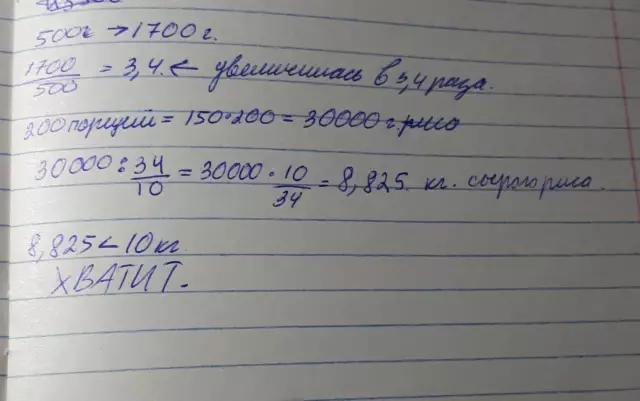 500г → 1700 г.
1700/500 = 3,4. ← увеличилась в 3,4 раза.
200 порций = 150·200 = 30000 г. риса
30000 : 34/10 = 30000 · 10/34 = 8,825 кг. сырого риса.
8,825 < 10 кг
ХВАТИТ.